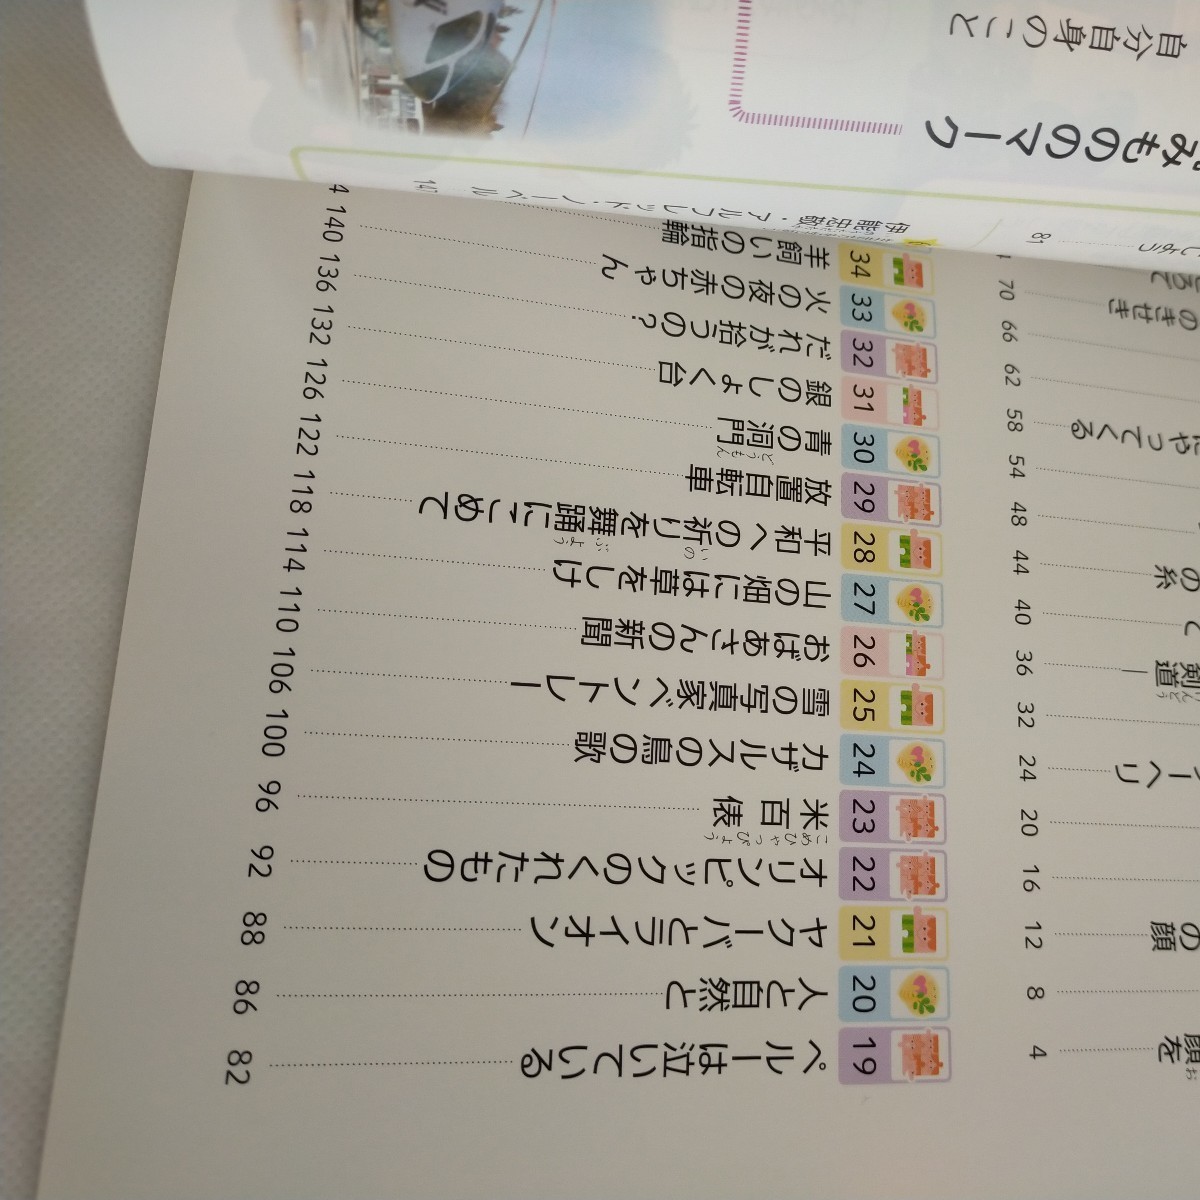 自分自身のこと
みもののマーク
19 ペルーは泣いている 82
20 人と自然と 86
21 ヤクーバとライオン 88
22 オリンピックのくれたもの 92
こめひゃっぴょう
23 米百俵 96
24 カザルスの鳥の歌 100
25 雪の写真家ベントレー 106
26 おばあさんの新聞 110
27 山の畑には草をしけ 114
いの ぶよう
28 平和への祈りを舞踊にこめて 118
29 放置自転車 122
どうもん
30 青の洞門 126
31 銀のしょく台 132
32 だれが拾うの? 136
33 火の夜の赤ちゃん 140
34 羊飼いの指輪
・アルフレッド・ノーベル 147
顔を 4
8
の顔 12
16
20
ーヘリ 24
32
剣道 36
と 40
の糸 44
48
54
にやってくる 58
62
66
のきせき 70
81